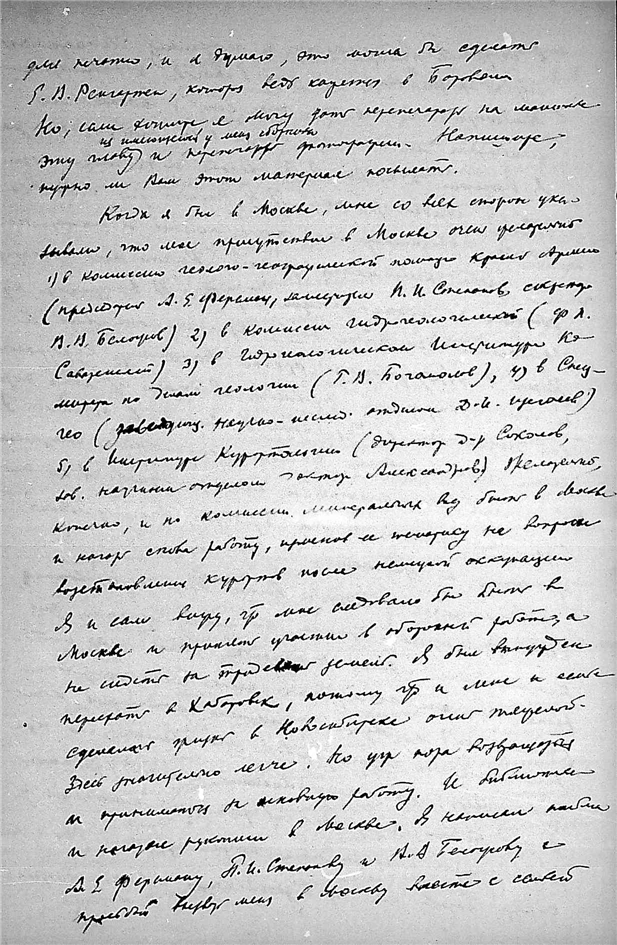 для печати, и я думаю, это могла бы сделать
Е. В. Ренгартен, которая ведь кажется в Боровом
Но, если хотите, я могу дать перепечатать на машинке
из имеющегося у меня сборника
эту главу, и переснять фотографии. Напишите,
нужно ли Вам этот материал посылать.
Когда я был в Москве, мне со всех сторон ука-
зывали, что мое присутствие в Москве очень желательно
1) в комиссии геолого-географической помощи Красной Армии
(председатель А. Е. Ферсман, заместитель П. И. Степанов, секретарь
В. В. Белоусов) 2) в комиссии гидрогеологической (Ф. П.
Саваренский) 3) в Гидрогеологическом Институте Ко-
митета по делам геологии (Г. В. Богомолов), 4) в Спец-
гео (заведующ. научно-исслед. отделом Д. И. Щеголев)
5) в Институте Курортологии (директор д-р Соколов,
зав. научным отделом доктор Александров) Желательно,
конечно, и по комиссии минеральных вод быть в Москве
и начать снова работу, применив ее тематику на вопросы
возстановления курортов после немецкой оккупации
Я и сам вижу, что мне следовало бы быть в
Москве и принять участие в оборонной работе, а
не сидеть за тридевять земель. Я был вынужден
переехать в Хабаровск, потому что и мне и семье
сделалась жизнь в Новосибирске очень тяжелой.
Здесь значительно легче. Но уже пора возвращаться
и приниматься за основную работу. И библиотека
и начатые рукописи в Москве. Я написал письма
А. Е. Ферсману, П. И. Степанову и В. В. Белоусову с
просьбой вызвать меня в Москву вместе с семьей